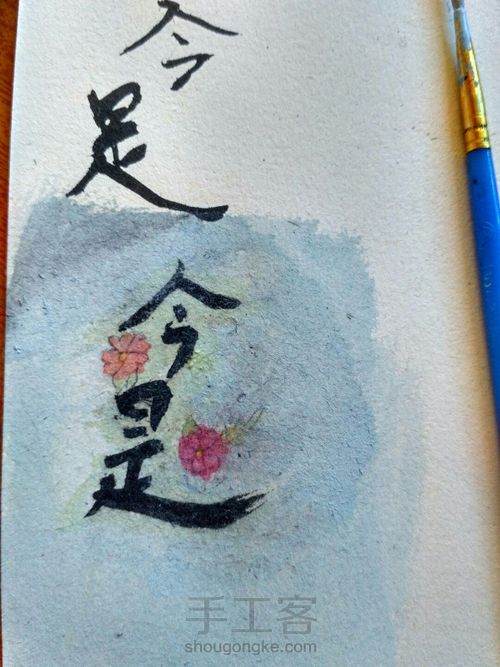 今
是
今
是
手工客
shougongke.com